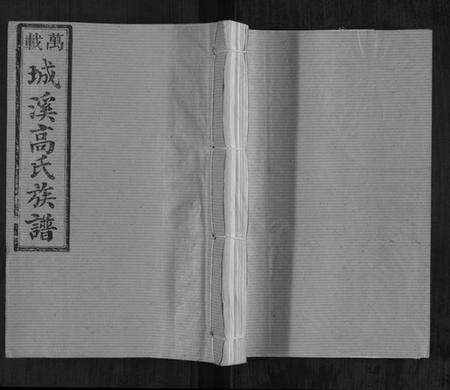 萬載
城溪高氏族譜